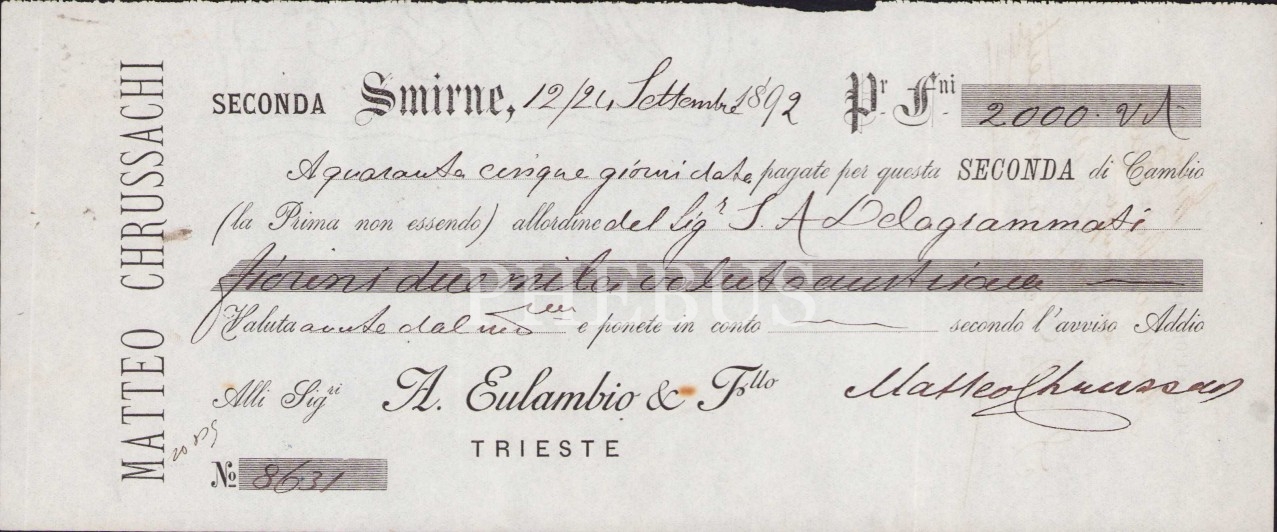 MATTEO CHRUSSACHI
SECONDA Smirne, 12/24 Settembre 1892 Pr. Fni. 2000. VA
A quaranta cinque giorni data pagate per questa SECONDA di Cambio
(la Prima non essendo) all'ordine del Sigr S. A Delagrammati
fiorini due mila valuta austriaca
PHEBUS
Valuta avuta dal e ponete in conto secondo l'avviso Addio
Alli Sigri A. Eulambio & Fllo Matteo Chrussachi
TRIESTE
No 8631